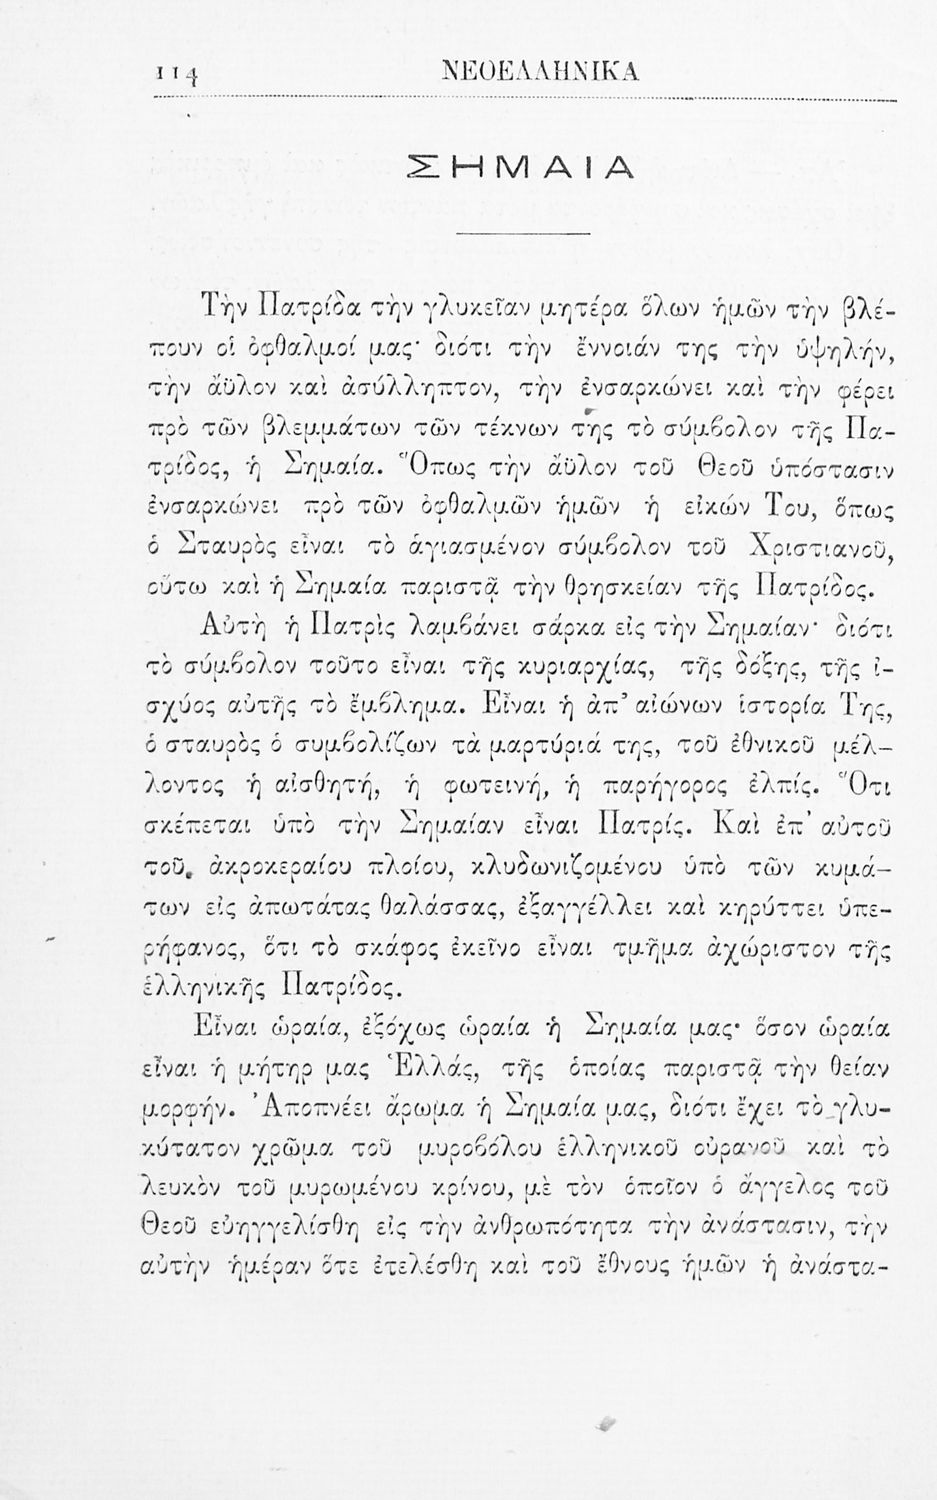 114 ΝΕΟΕΛΛΗΝΙΚΑ
ΣΗΜΑΙΑ
Τὴν Πατρίδα τὴν γλυκεῖαν μητέρα ὅλων ἡμῶν τὴν βλέ-
πουν οἱ ὀφθαλμοί μας· διότι τὴν ἔννοιάν της τὴν ὑψηλήν,
τὴν ἄϋλον καὶ ἀσύλληπτον, τὴν ἐνσαρκώνει καὶ τὴν φέρει
πρὸ τῶν βλεμμάτων τῶν τέκνων της τὸ σύμβολον τῆς Πα-
τρίδος, ἡ Σημαία. Ὅπως τὴν ἄϋλον τοῦ Θεοῦ ὑπόστασιν
ἐνσαρκώνει πρὸ τῶν ὀφθαλμῶν ἡμῶν ἡ εἰκών Του, ὅπως
ὁ Σταυρὸς εἶναι τὸ ἁγιασμένον σύμβολον τοῦ Χριστιανοῦ,
οὕτω καὶ ἡ Σημαία παριστᾷ τὴν θρησκείαν τῆς Πατρίδος.
Αὐτὴ ἡ Πατρὶς λαμβάνει σάρκα εἰς τὴν Σημαίαν· διότι
τὸ σύμβολον τοῦτο εἶναι τῆς κυριαρχίας, τῆς δόξης, τῆς ἰ-
σχύος αὐτῆς τὸ ἔμβλημα. Εἶναι ἡ ἀπ’ αἰώνων ἱστορία Της,
ὁ σταυρὸς ὁ συμβολίζων τὰ μαρτύριά της, τοῦ ἐθνικοῦ μέλ-
λοντος ἡ αἰσθητή, ἡ φωτεινή, ἡ παρήγορος ἐλπίς. Ὅτι
σκέπεται ὑπὸ τὴν Σημαίαν εἶναι Πατρίς. Καὶ ἐπ’ αὐτοῦ
τοῦ ἀκροκεραίου πλοίου, κλυδωνιζομένου ὑπὸ τῶν κυμά-
των εἰς ἀπωτάτας θαλάσσας, ἐξαγγέλλει καὶ κηρύττει ὑπε-
ρήφανος, ὅτι τὸ σκάφος ἐκεῖνο εἶναι τμῆμα ἀχώριστον τῆς
ἑλληνικῆς Πατρίδος.
Εἶναι ὡραία, ἐξόχως ὡραία ἡ Σημαία μας· ὅσον ὡραία
εἶναι ἡ μήτηρ μας Ἑλλάς, τῆς ὁποίας παριστᾷ τὴν θείαν
μορφήν. Ἀποπνέει ἄρωμα ἡ Σημαία μας, διότι ἔχει τὸ γλυ-
κύτατον χρῶμα τοῦ μυροβόλου ἑλληνικοῦ οὐρανοῦ καὶ τὸ
λευκὸν τοῦ μυρωμένου κρίνου, μὲ τὸν ὁποῖον ὁ ἄγγελος τοῦ
Θεοῦ εὐηγγελίσθη εἰς τὴν ἀνθρωπότητα τὴν ἀνάστασιν, τὴν
αὐτὴν ἡμέραν ὅτε ἐτελέσθη καὶ τοῦ ἔθνους ἡμῶν ἡ ἀνάστα-